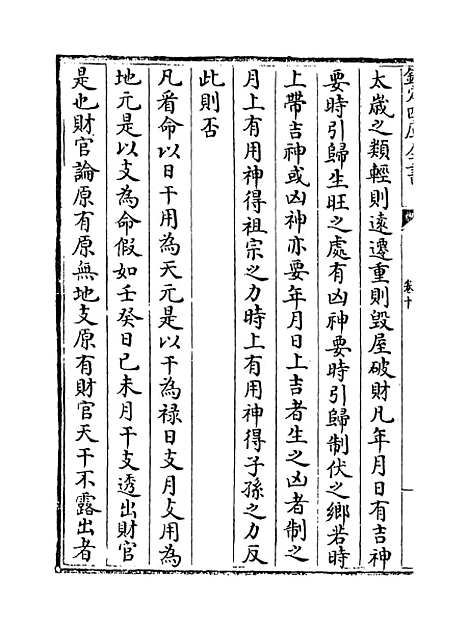 欽定四庫全書
卷十
太歲之類輕則遠遷重則毀屋破財凡年月日有吉神
要時引歸生旺之處有凶神要時引歸制伏之鄉若時
上帶吉神或凶神亦要年月日上吉者生之凶者制之
月上有用神得祖宗之力時上有用神得子孫之力反
此則否
凡看命以日干用為天元是以干為祿日支月支用為
地元是以支為命假如壬癸日己未月干支透出財官
是也財官論原有原無地支原有財官天干不露出者